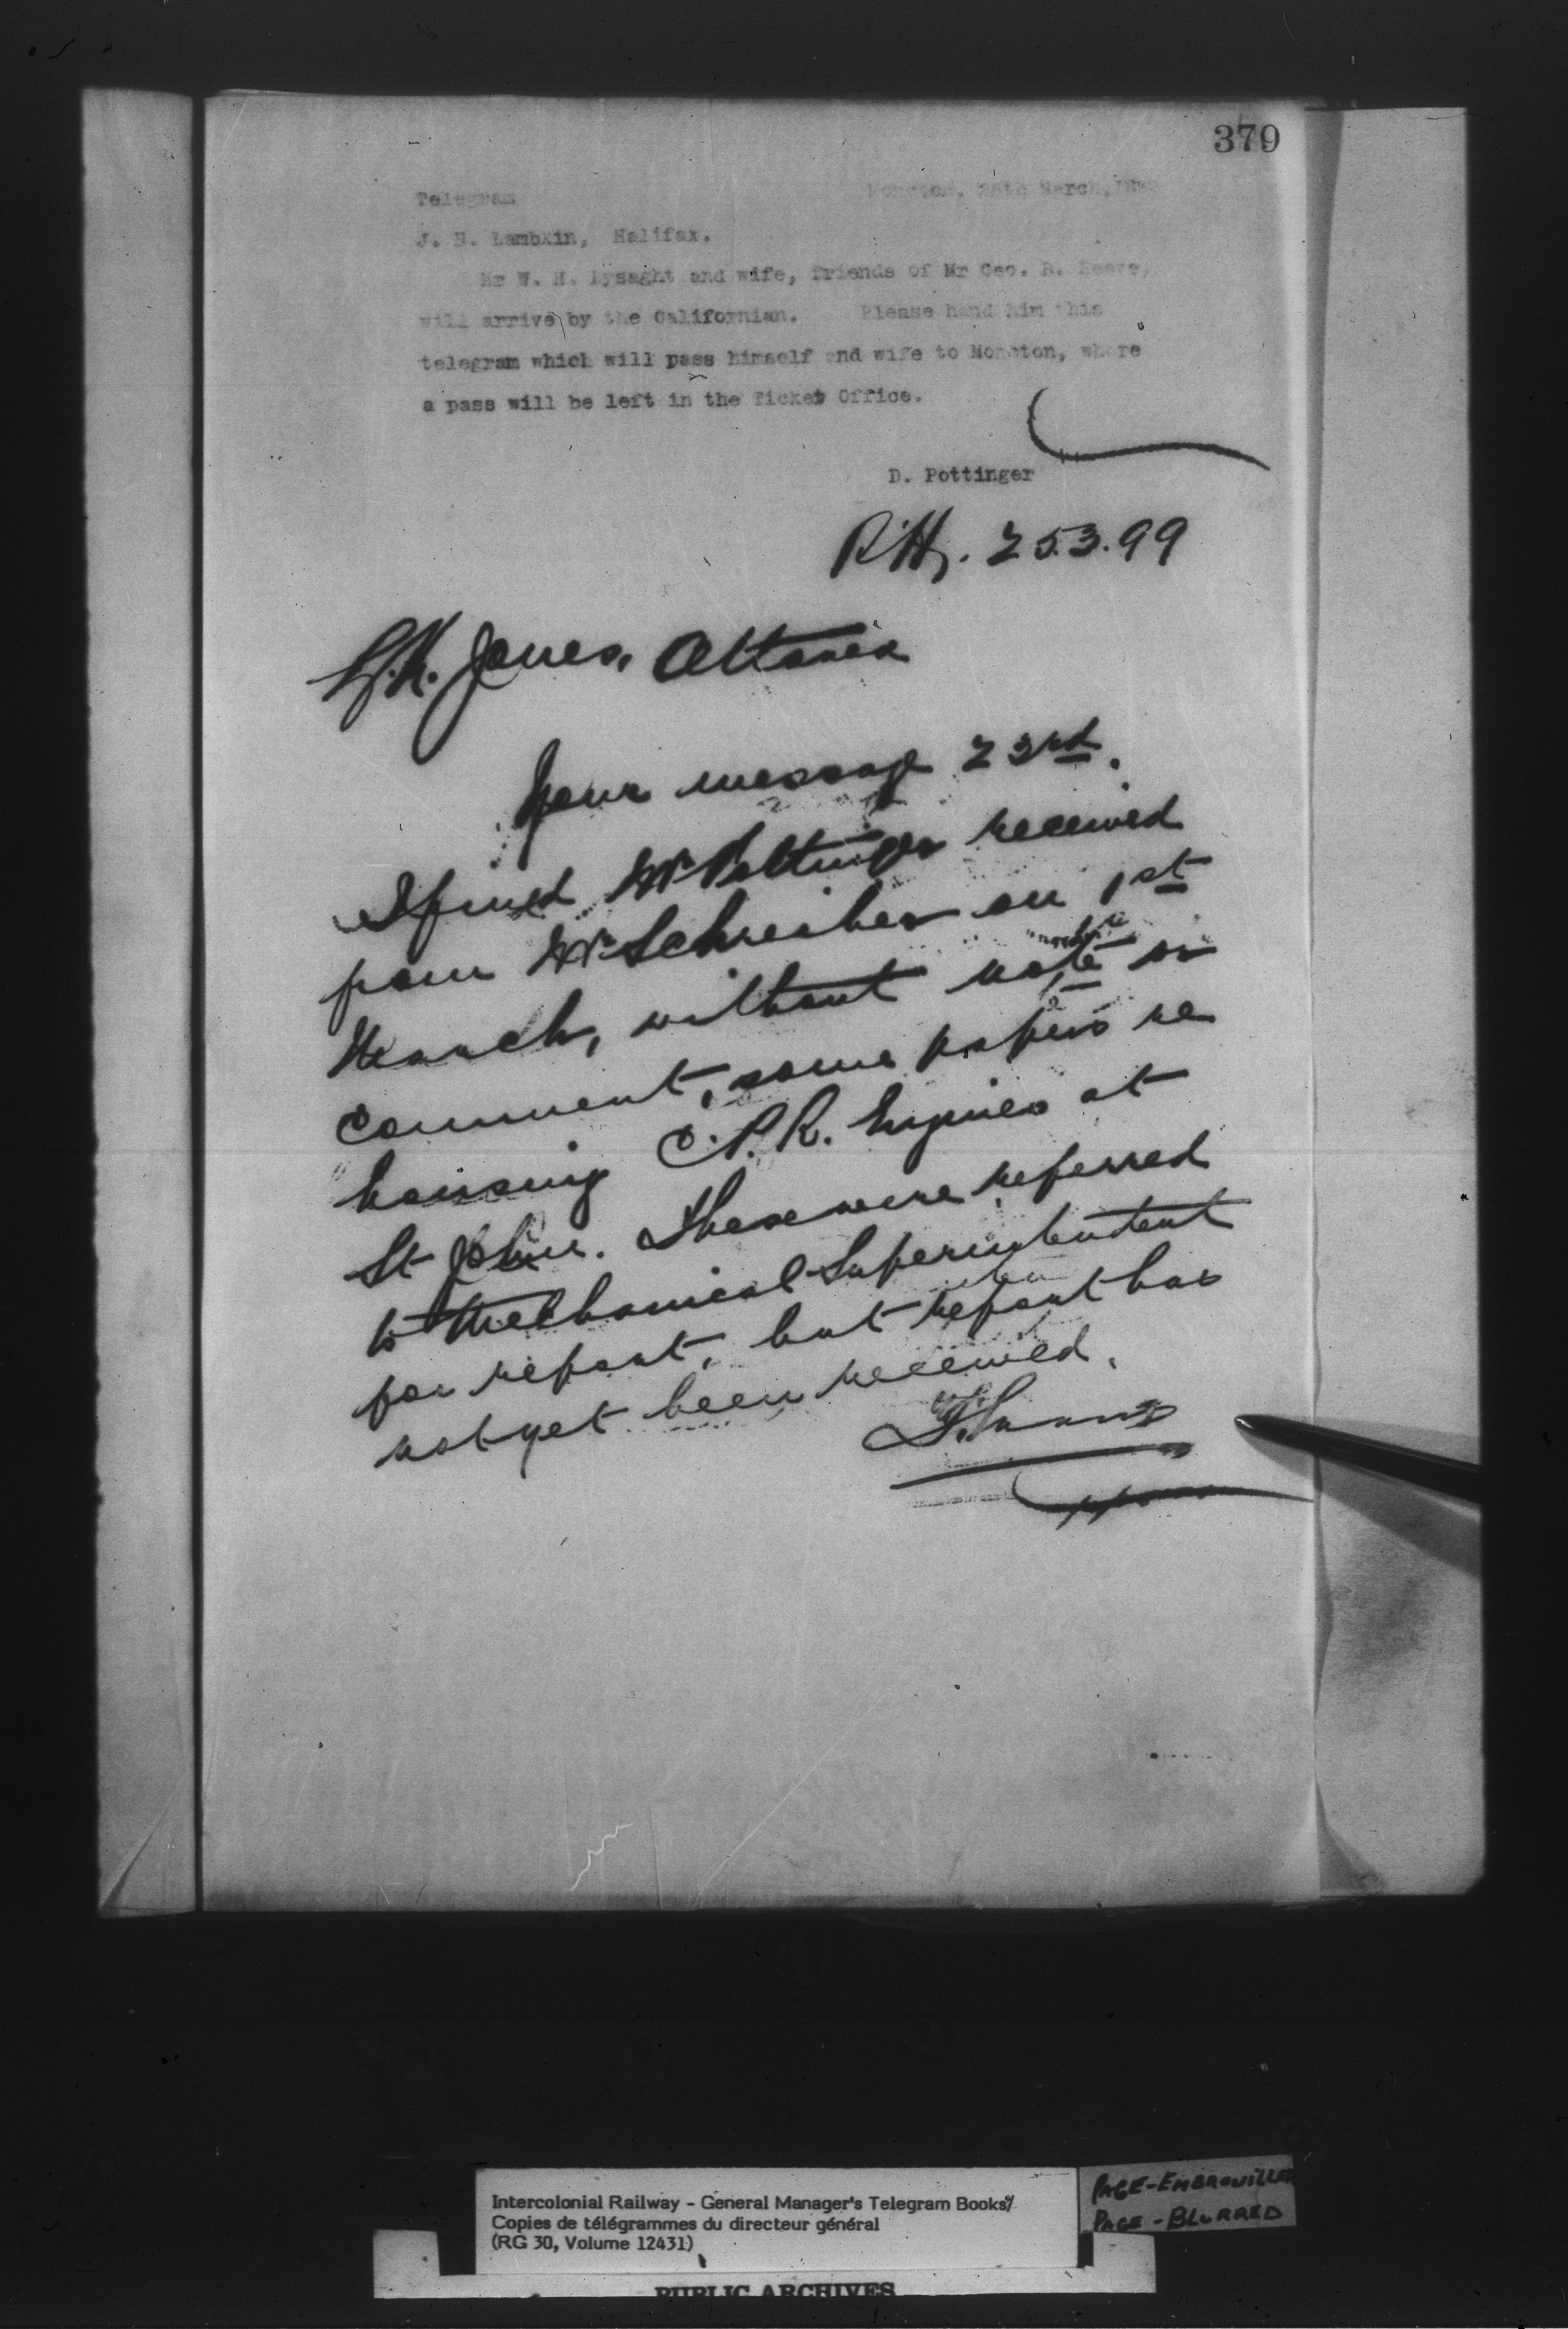 379
Telegram Moncton, 25th March, 189
J. B. Lambkin, Halifax.
Mr W. H. Lysaght and wife, friends of Mr Geo. B. Reeve,
will arrive by the Californian. Please hand him this
telegram which will pass himself and wife to Moncton, where
a pass will be left in the Ticket Office.
D. Pottinger
25.3.99
Jones, Ottawa
Your message 23rd.
I find Mr Pottinger received
from Mr Schreiber on 1st
March, without note or
comment, some papers re
housing C.P.R. Engines at
St John. These were referred
to Mechanical Superintendent
for report, but report has
not yet been received.
Intercolonial Railway - General Manager's Telegram Books/
Copies de télégrammes du directeur général
(RG 30, Volume 12431)
PAGE-EMBROUILLÉE
PAGE-BLURRED
PUBLIC ARCHIVES